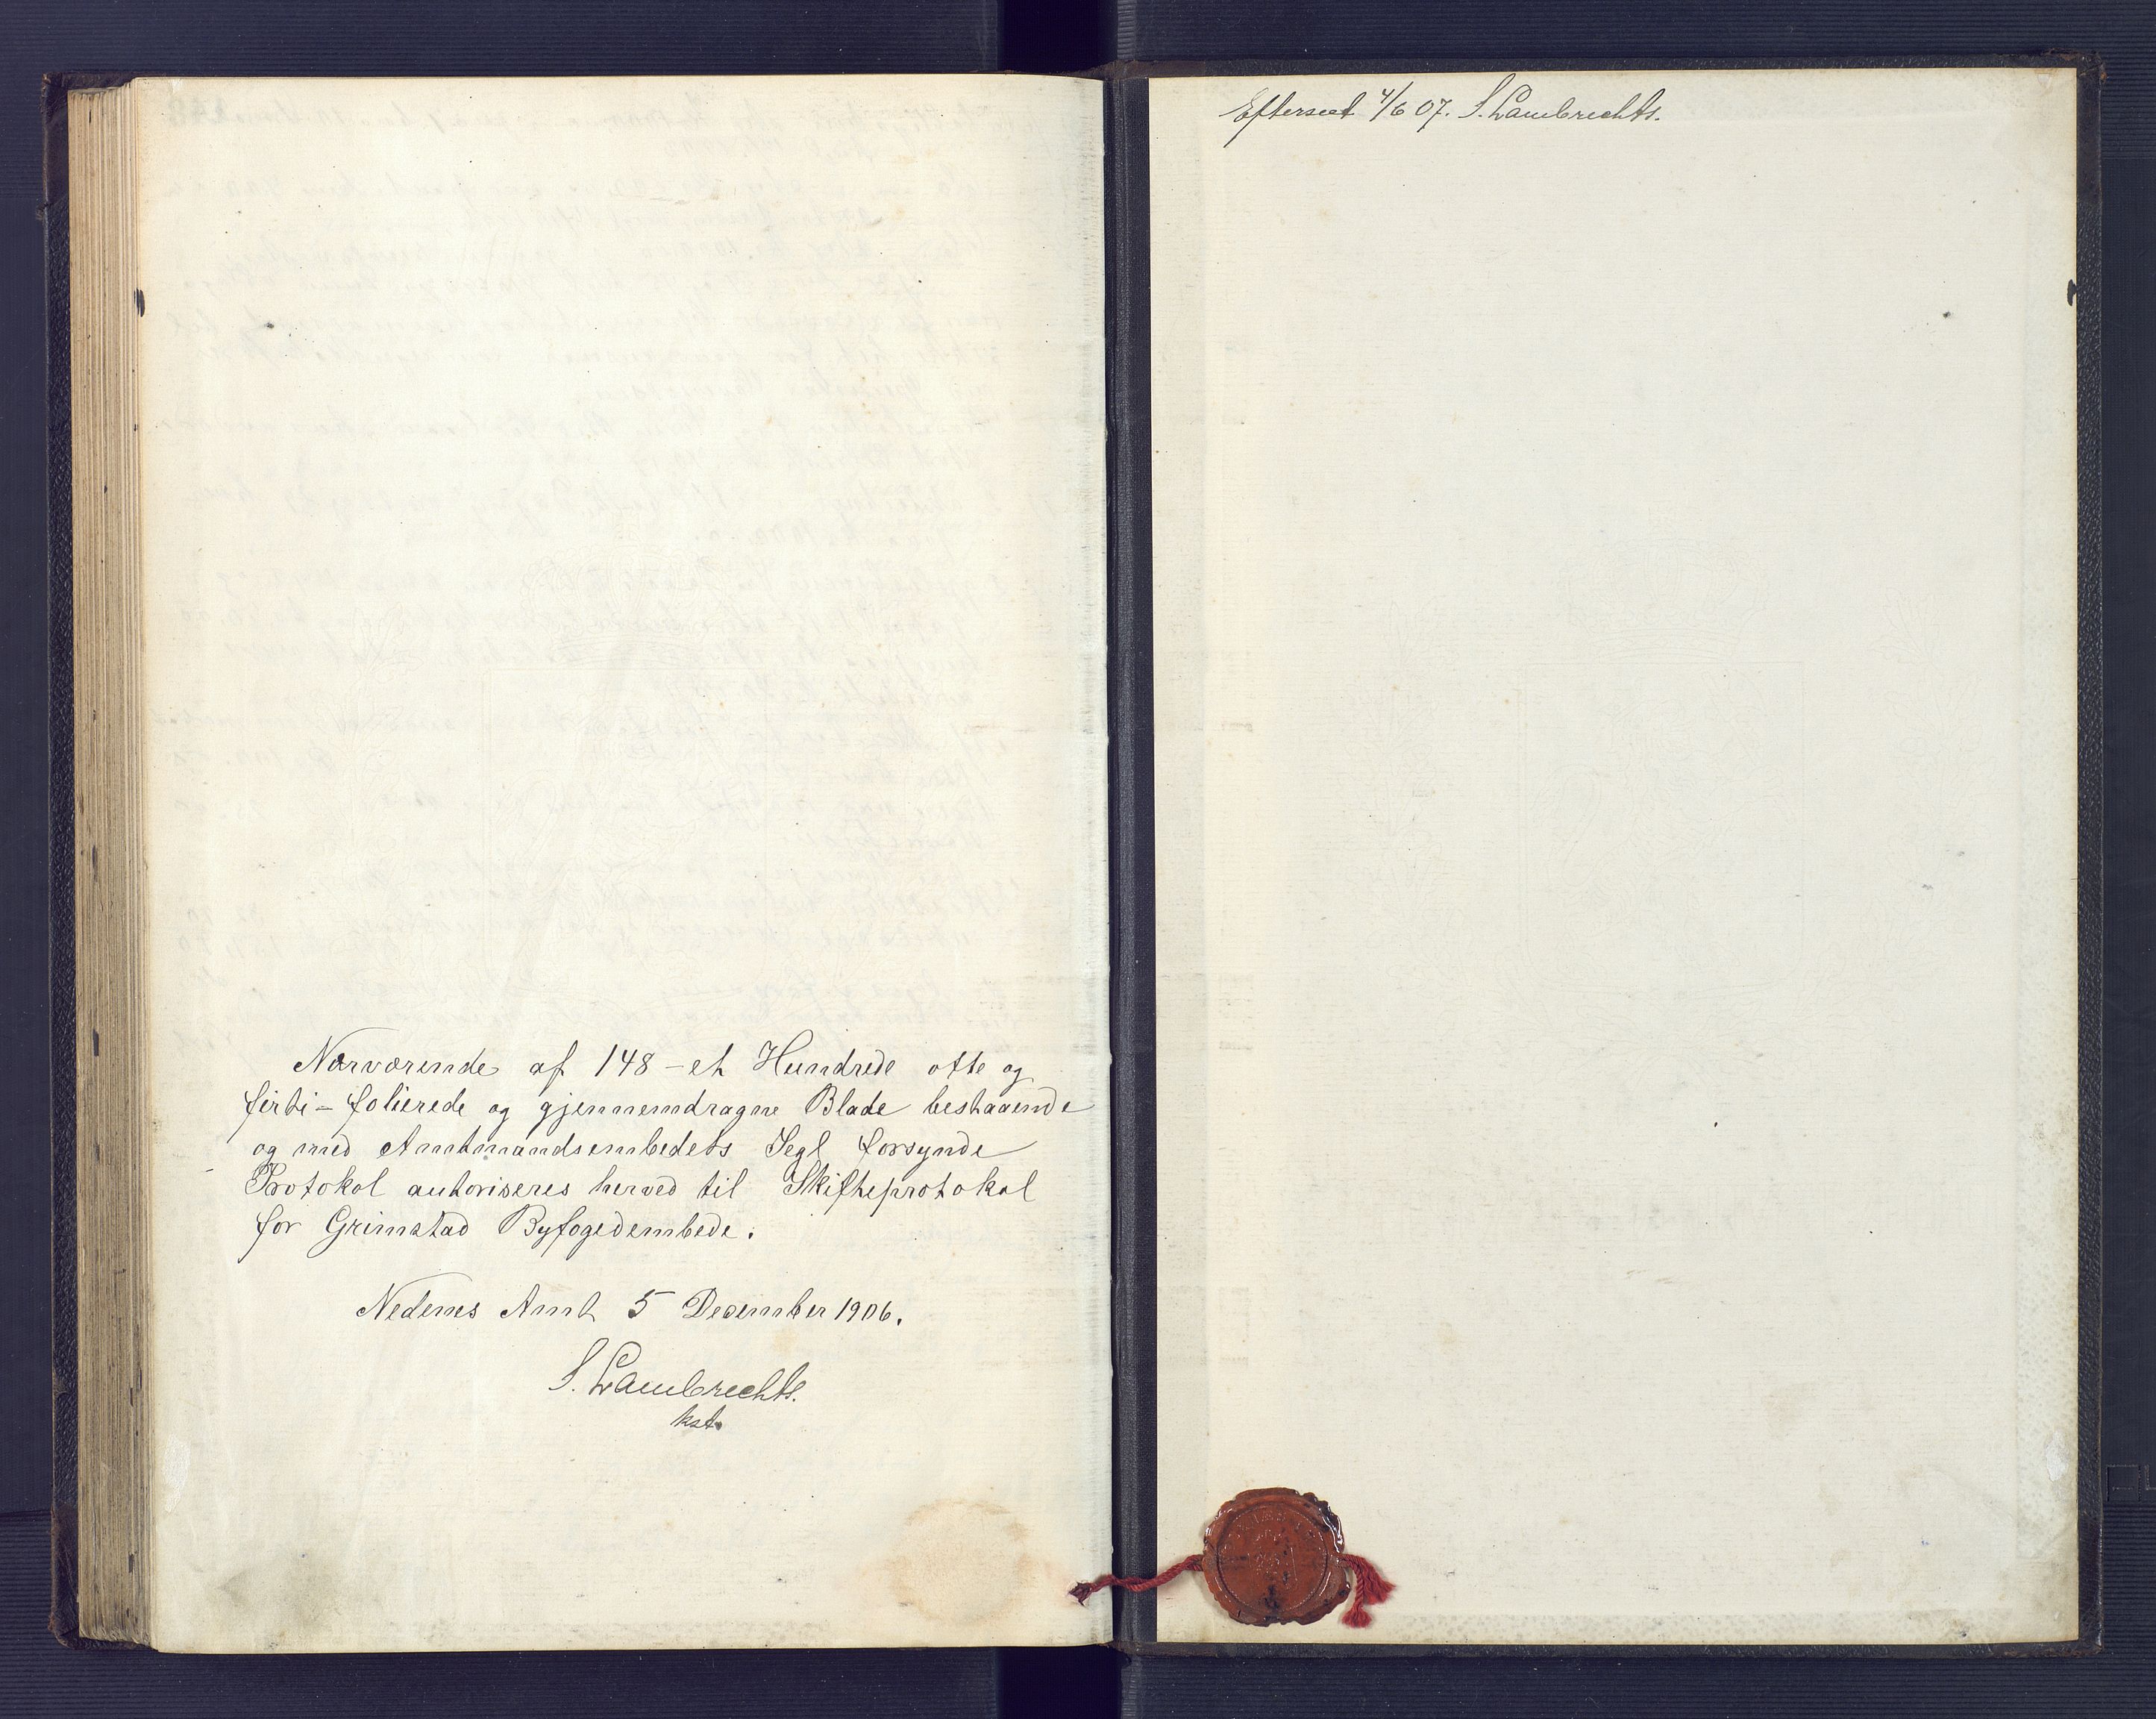 Nærværende af 148 - et Hundrede otte og
firti - folierede og gjennemdragne Blade bestaaende
og med Amtmandsembedets Segl forsynde
Protokol autoriseres herved til Skifteprotokol
for Grimstad Byfogedembede.
Nedenes Amt 5 December 1906.
S. Lambrechts.
kst.
Efterseet 4/6 07. S. Lambrechts.